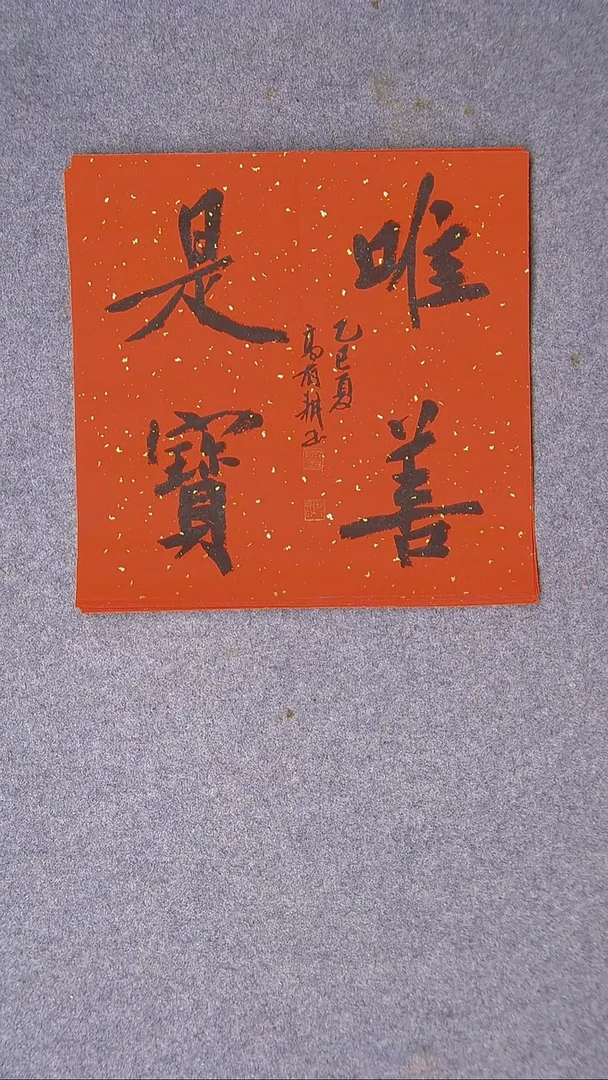 唯善
是寶
乙巳夏
高有耕书